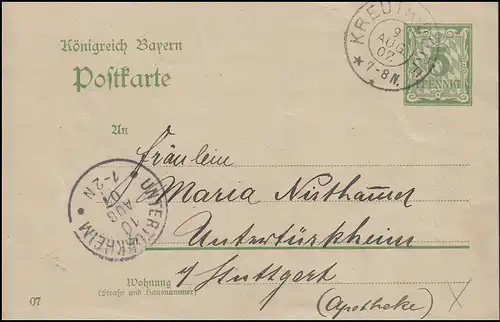 Königreich Bayern
Postkarte
KREUTH
9
AUG
07.
7-8 N.
5
PFENNIG
An
Fräulein
Maria
Untertürkheim
UNTERTÜRKHEIM
10
AUG
07
1-2 N
b/Stuttgart
Wohnung
(Straße und Hausnummer)
(Apotheke)
07